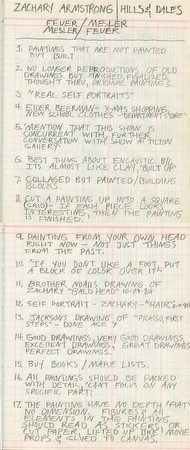 ZACHARY ARMSTRONG HILLS & DALES
FEUER/MESLER
MESLER/FEUER
1. PAINTINGS THAT ARE NOT PAINTED
BUT BUILT
2. NO LONGER REPRODUCTIONS OF OLD
DRAWINGS BUT FINISHED, FINALISED,
THOUGHT THRU, ORIGINAL PAINTINGS.
3. "REAL SELF PORTRAITS"
4. EIDER BEERMAN - X-MAS SHOPPING,
NEW SCHOOL CLOTHES - DEPARTMENT STORE
5. MENTION THAT THIS SHOW IS
CONCURRENT WITH, FURTHER
CONVERSATION WITH SHOW @ TILTON
GALLERY
6. BEST THING ABOUT ENCAUSTIC
ITS ALMOST LIKE CLAY, "BUILT UP"
7. COLLAGED BUT PAINTED/BUILDING
BLOCKS.
8. CUT A PAINTING UP INTO A SQUARE
GRID - IF EACH PIECE LOOKS
INTERESTING, THEN THE PAINTING
IS FINISHED.
9. PAINTING FROM YOUR OWN HEAD
RIGHT NOW - NOT JUST THINGS
FROM THE PAST.
10. "IF YOU DON'T LIKE A FOOT, PUT
A BLOCK OF COLOR OVER IT"
11. BROTHER NOAHS DRAWING OF
ZACHARY "BALD HEAD"
12. SELF PORTRAIT - ZACHARY - "HAIR"
13. JACKSONS DRAWING OF "PICASSO, FIRST
STEPS" - DONE AGE 7
14. GOOD DRAWINGS, VERY GOOD DRAWINGS,
EXCELLENT DRAWINGS, GREAT DRAWINGS,
PERFECT DRAWINGS.
15. BUY BOOKS / MAKE LISTS.
16. ALL PAINTINGS SHOULD BE PACKED
WITH DETAIL, "CAN'T FOCUS ON ANY
SPECIFIC PART".
17. THE PAINTING HAVE NO DEPTH (FLAT)
NO DIMENSION. FIGURES & ALL
ELEMENTS IN THE PAINTING
SHOULD READ AS STICKERS OR
CUT PAPER, LIFTED UP LIKE MOVIE
PROPS & GLUED TO CANVAS.